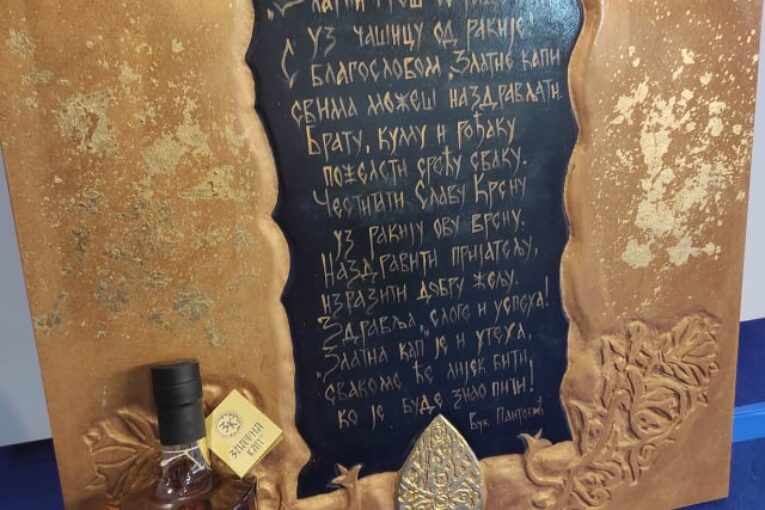 уз чашицу од ракије!
С благословом „Златне капи
свима можеш наздрављати.
Брату, куму и рођаку
пожелети срећу сваку.
Честитати Славу Крсну
уз ракију ову врсну.
Наздравити пријатељу,
изразити добру жељу.
Здравља, слоге и успеха!
„Златна кап“ је и утеха,
свакоме ће лијек бити,
ко је буде знао пити!
Вук Пантовић
ЗК
ЗЛАТНА
КАП